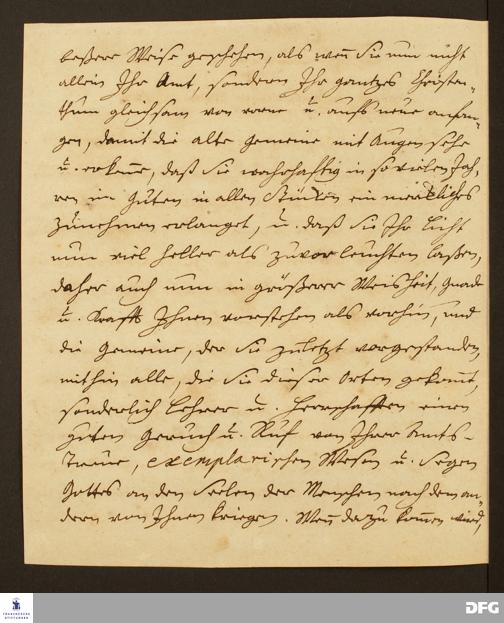 beßere Weise geschehen, als wenn Sie nun nicht
allein Ihr Amt, sondern Ihr gantzes Christen-
thum gleichsam von vorne u. aufs neue anfan-
gen, damit die alte Gemeine mit Augen sehe
u. erkenne, daß Sie wahrhafftig in so vielen Jah-
ren im Guten in allen Stücken ein merckliches
Zunehmen erlanget, u. daß Sie Ihr Licht
nun viel heller als zuvor leuchten laßen,
daher auch nun in größerer Weisheit, Gnade
u. Krafft Ihnen vorstehen als vorhin, und
die Gemeine, der Sie zuletzt vorgestanden,
mithin alle, die Sie dieser Orten gekannt,
sonderlich Lehrer u. Herrschafften einen
guten Geruch u. Ruf von Ihrer Amts-
Treue, exemplarischen Wesen u. Segen
Gottes an den Seelen der Menschen nach dem an-
dern von Ihnen kriegen. Wenn dazu kommen wird,
FRANCKESCHE
STIFTUNGEN
DFG